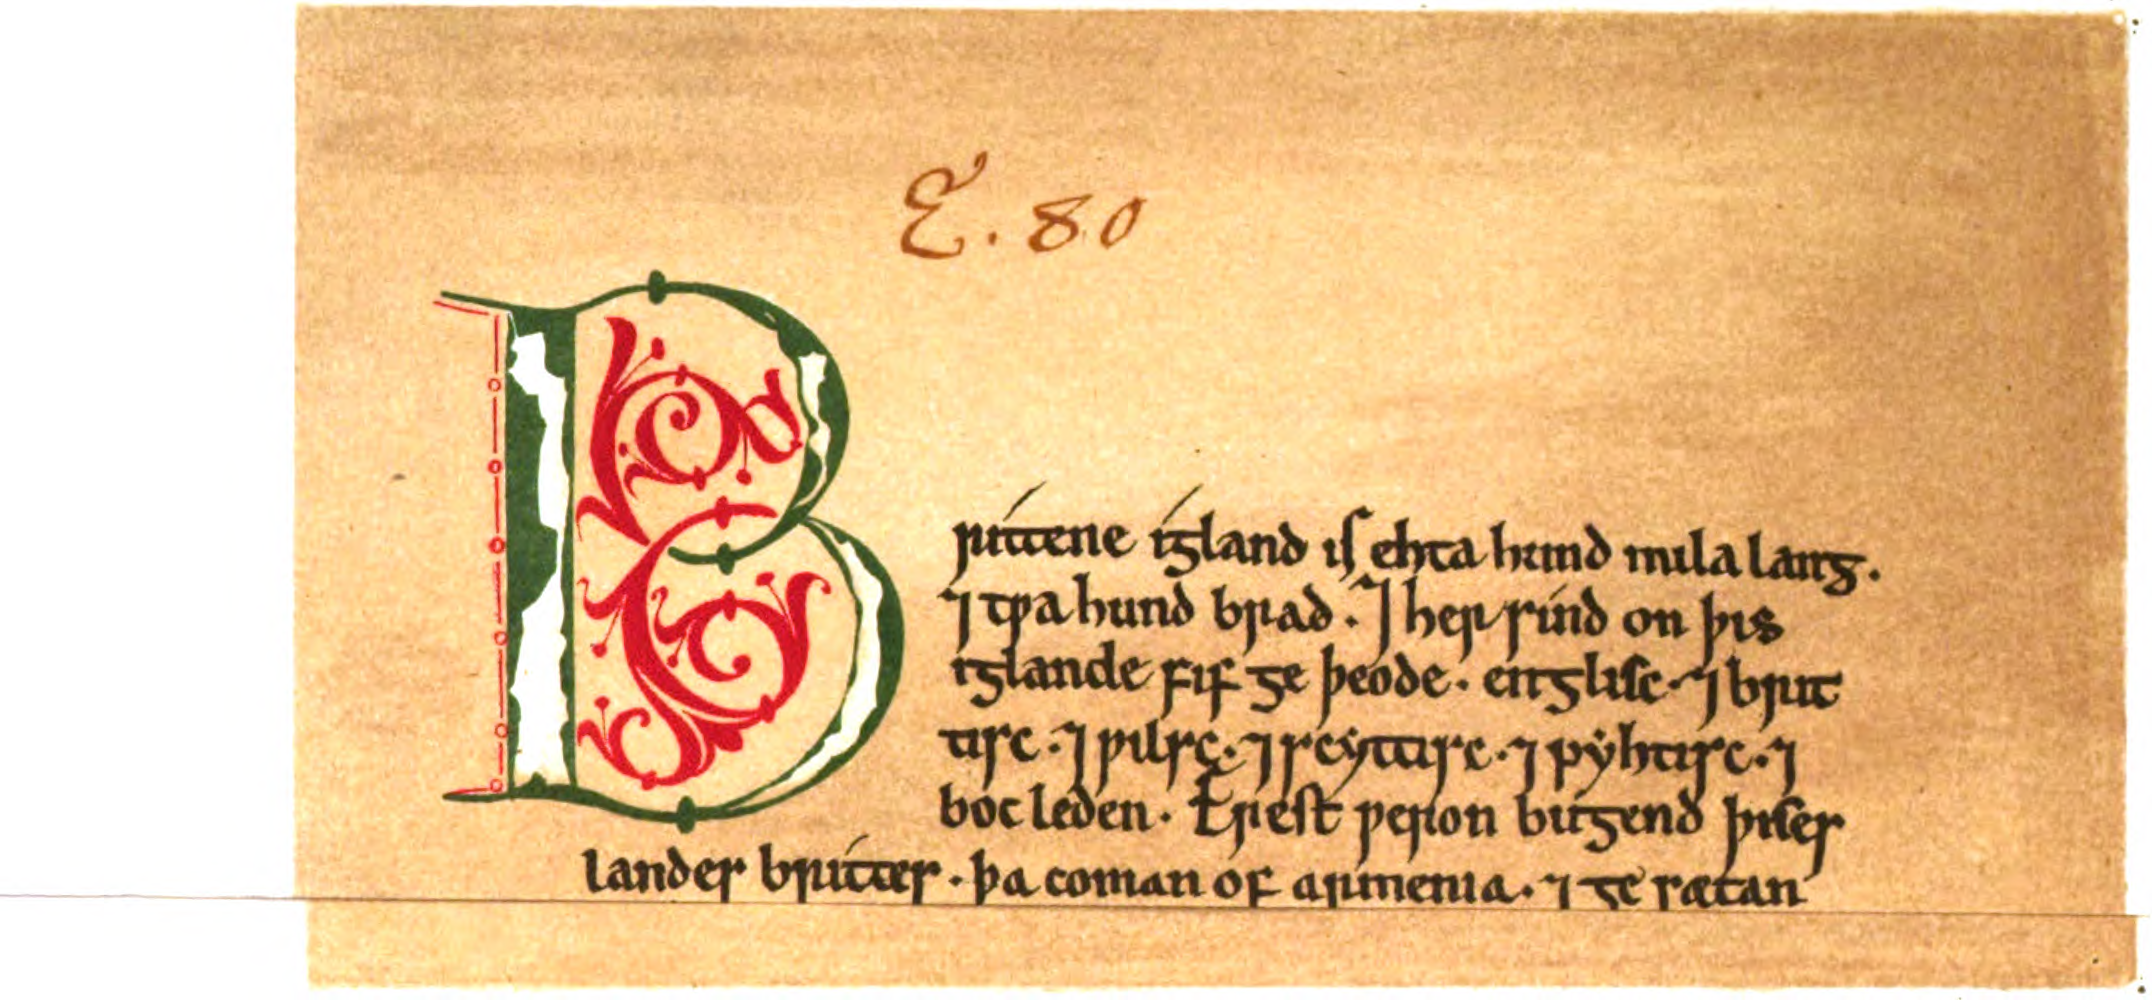 E. 80
Brittene igland is ehta hund mila lang.
⁊ tƿa hund brad. ⁊ her sind on þis
iglande fif ge þeode. englisc. ⁊ brit
tisc. ⁊ ƿilsc. ⁊ scyttisc. ⁊ pyhtisc. ⁊
boc leden. Erest ƿeron bugend þises
landes brittes. þa coman of armenia. ⁊ ge sætan